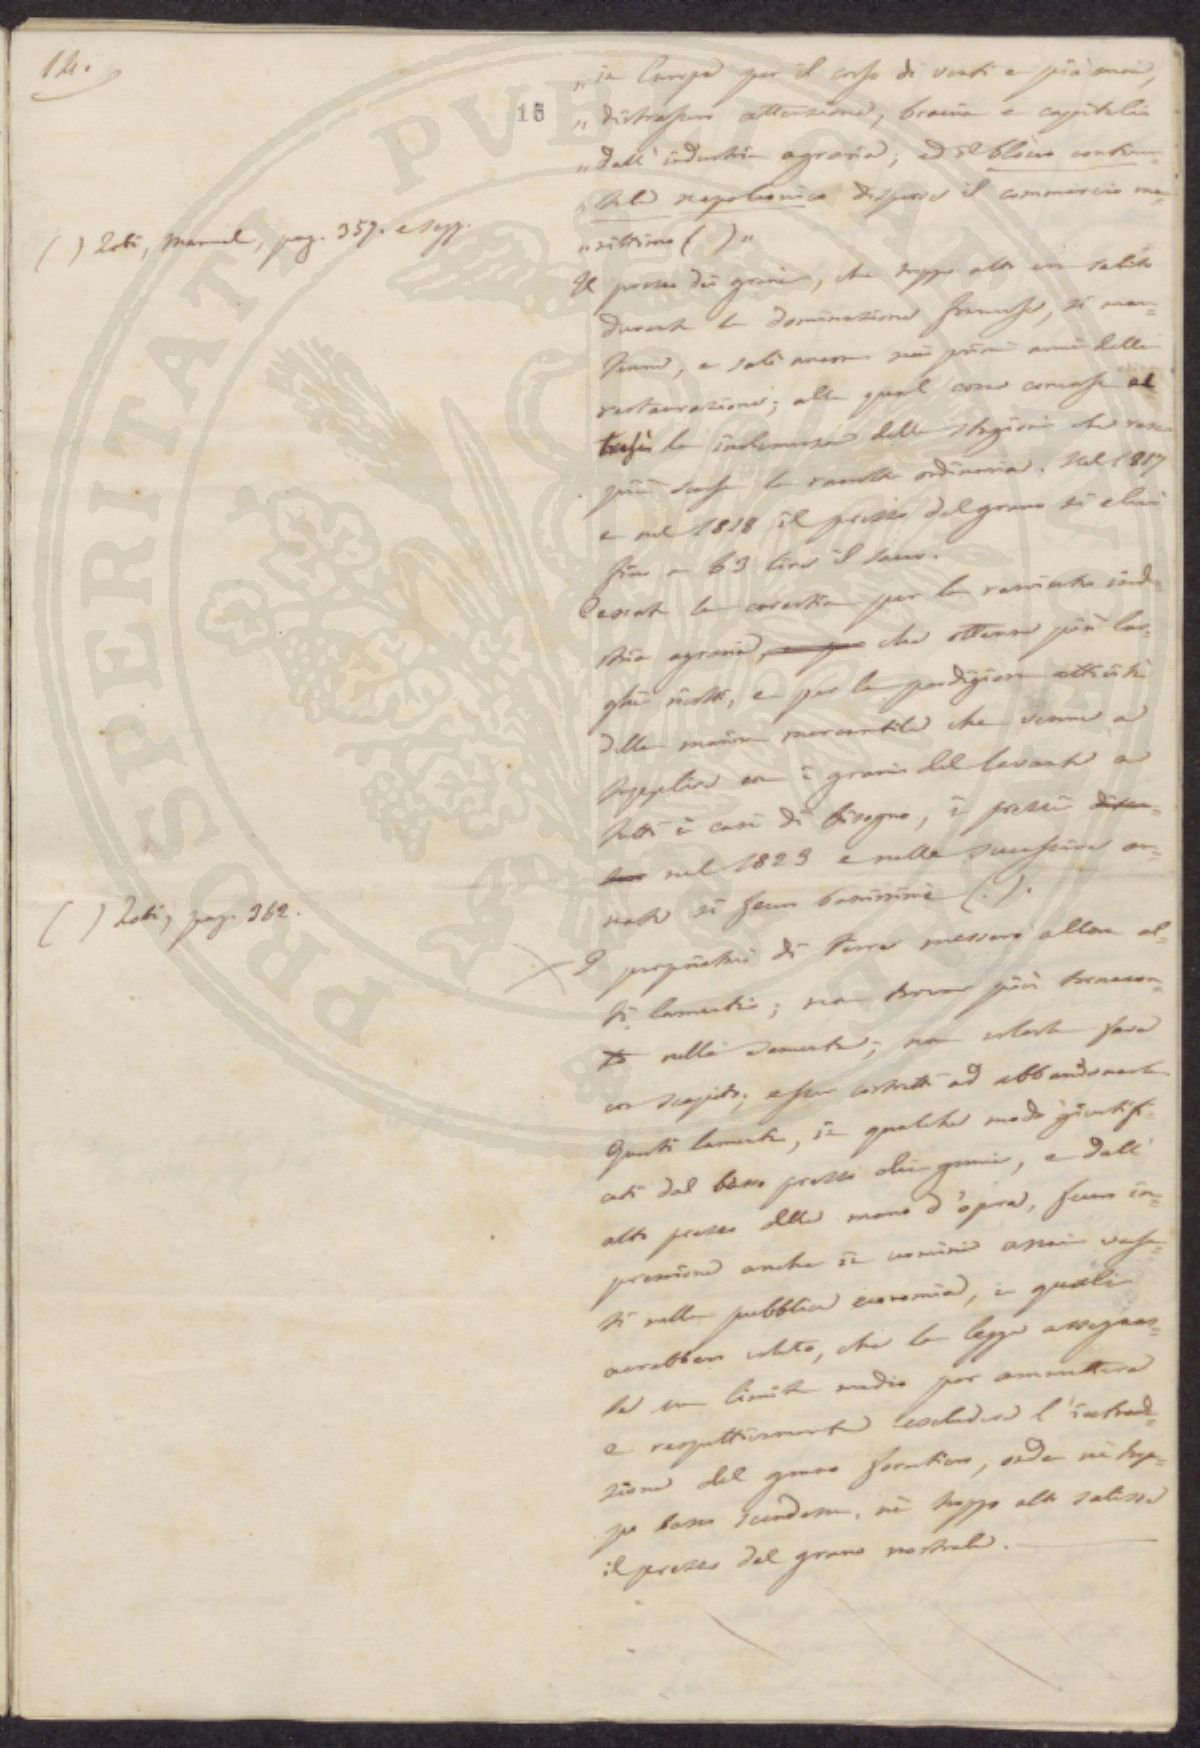 14.
16
„ in Europa per il corso di venti e più anni,
„ distrassero attenzione, braccia e capitali
„ dall' industria agraria; ed il blocco continen=
„ tale napoleonico disperse il commercio ma=
„ rittimo ( ) „
( ) Zobi, Manuale, pag. 357. e segg.
Il prezzo dei grani, che troppo alto era salito
durante la dominazione francese, si man=
tenne, e salì ancora nei primi anni della
restaurazione; alla qual cosa concorse al
tresì la inclemenza delle stagioni che rese
più scarse le raccolte ordinarie. Nel 1817
e nel 1818 il prezzo del grano si elevò
fino a 63 lire il sacco.
Cessata la carestia per la ravvivata indu=
stria agraria, che ottenne più lar=
ghi ricolti, e per la prodigiosa attività
della marina mercantile che venne a
supplire con i grani del levante a
tutti i casi di bisogno, i prezzi
nel 1823 e nelle successive an=
nate si fecero bassissimi ( . ).
( ) Zobi, pag. 362.
I proprietari di terre messero allora al=
ti lamenti; non trovar più tornacon=
to nelle sementa; non volerle fare
con scapito; esser costretti ad abbandonarle.
Questi lamenti, in qualche modo giustifi=
cati dal basso prezzo dei grani, e dall'
alto prezzo della mano d'opera, fecero im=
pressione anche in uomini assai versa=
ti nella pubblica economia, i quali
avrebbero voluto, che la legge assegnas=
se un limite medio per ammettere
e respettivamente escludere l'introdu=
zione del grano forestiero, onde nè trop=
po basso scendesse, nè troppo alto salisse
il prezzo del grano nostrale.
PROSPERITATI PVBLICAE